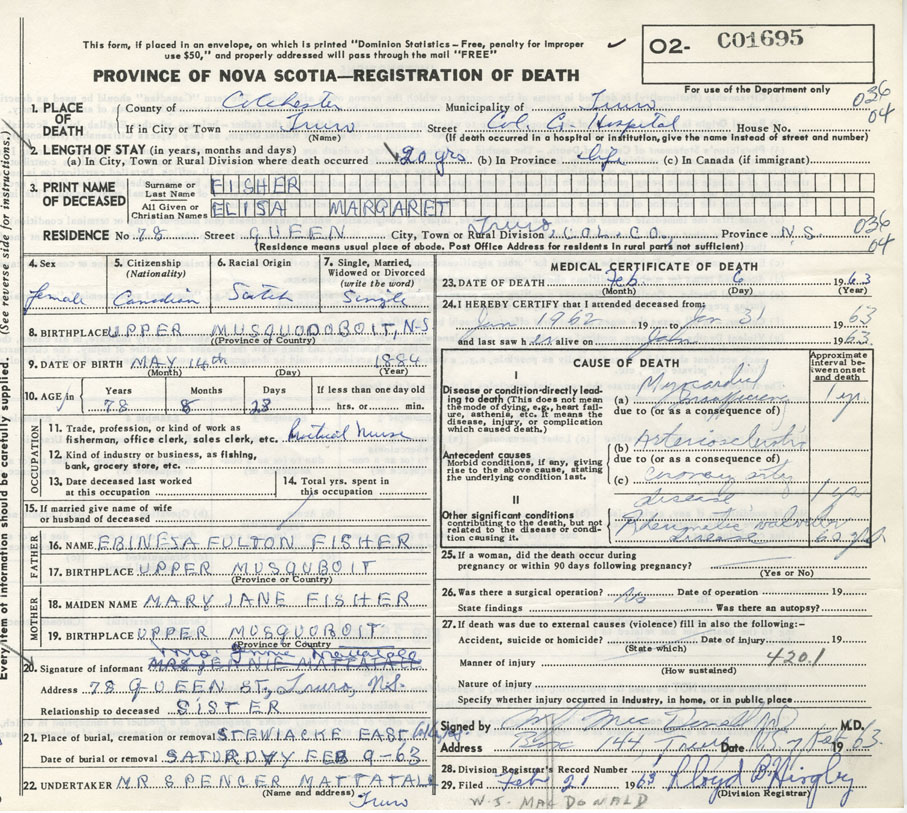 This form, if placed in an envelope, on which is printed "Dominion Statistics – Free, penalty for improper
use $50," and properly addressed will pass through the mail "FREE"
O2- C01695
PROVINCE OF NOVA SCOTIA—REGISTRATION OF DEATH
For use of the Department only
036
04
1. PLACE OF DEATH
County of Colchester Municipality of Truro
If in City or Town Truro Street Col. Co. Hospital House No.
(Name) (If death occurred in a hospital or institution, give the name instead of street and number)
2. LENGTH OF STAY (in years, months and days)
(a) In City, Town or Rural Division where death occurred 20 yrs (b) In Province life (c) In Canada (if immigrant)
3. PRINT NAME OF DECEASED
Surname or Last Name FISHER
All Given or Christian Names ELISA MARGARET
RESIDENCE No 78 Street QUEEN City, Town or Rural Division Truro, COL. CO. Province N.S.
036
04
(Residence means usual place of abode. Post Office Address for residents in rural parts not sufficient)
4. Sex female
5. Citizenship (Nationality) Canadian
6. Racial Origin Scotch
7. Single, Married, Widowed or Divorced (write the word) Single
8. BIRTHPLACE UPPER MUSQUODOBOIT, N.S.
(Province or Country)
9. DATE OF BIRTH MAY 14th 1884
(Month) (Day) (Year)
10. AGE in Years Months Days If less than one day old
78 8 23 hrs. or min.
OCCUPATION
11. Trade, profession, or kind of work as
fisherman, office clerk, sales clerk, etc. Nurse
12. Kind of industry or business, as fishing,
bank, grocery store, etc.
13. Date deceased last worked
at this occupation
14. Total yrs. spent in
this occupation
15. If married give name of wife
or husband of deceased
FATHER
16. NAME EBINESA FULTON FISHER
17. BIRTHPLACE UPPER MUSQUBOIT
(Province or Country)
MOTHER
18. MAIDEN NAME MARY JANE FISHER
19. BIRTHPLACE UPPER MUSQUOBOIT
(Province or Country)
20. Signature of informant Mrs. Mattatall
Address 78 QUEEN ST, Truro, N.S.
Relationship to deceased SISTER
21. Place of burial, cremation or removal STEWIACKE EAST
Date of burial or removal SATURDAY FEB 9-63
22. UNDERTAKER MR SPENCER MATTATALL
(Name and address)
Truro
MEDICAL CERTIFICATE OF DEATH
23. DATE OF DEATH Feb. 6 1963
(Month) (Day) (Year)
24. I HEREBY CERTIFY that I attended deceased from:
Jan 1962 19 to Jan 31 1963
and last saw h is alive on 1963.
CAUSE OF DEATH
Approximate interval between onset and death
I
Disease or condition directly leading to death (This does not mean
the mode of dying, e.g., heart failure, asthenia, etc. It means the
disease, injury, or complication
which caused death.)
(a) Myocardial 1 yr
due to (or as a consequence of)
Antecedent causes
Morbid conditions, if any, giving
rise to the above cause, stating
the underlying condition last.
(b) Arteriosclerotic
due to (or as a consequence of)
(c) coronary
disease 1 yr
II
Other significant conditions
contributing to the death, but not
related to the disease or condition causing it.
Rheumatic valvular
disease 60 yrs
25. If a woman, did the death occur during
pregnancy or within 90 days following pregnancy?
(Yes or No)
26. Was there a surgical operation? No Date of operation 19
State findings Was there an autopsy?
27. If death was due to external causes (violence) fill in also the following:–
Accident, suicide or homicide? Date of injury 19
(State which)
Manner of injury 420.1
(How sustained)
Nature of injury
Specify whether injury occurred in Industry, in home, or in public place
Signed by M.D.
Address Box 144 Truro Date N.S. 7 Feb 1963.
28. Division Registrar's Record Number
29. Filed Feb 21 1963 Lloyd B. Higby
(Division Registrar)
W.S. MACDONALD
Every item of information should be carefully supplied. (See reverse side for instructions.)